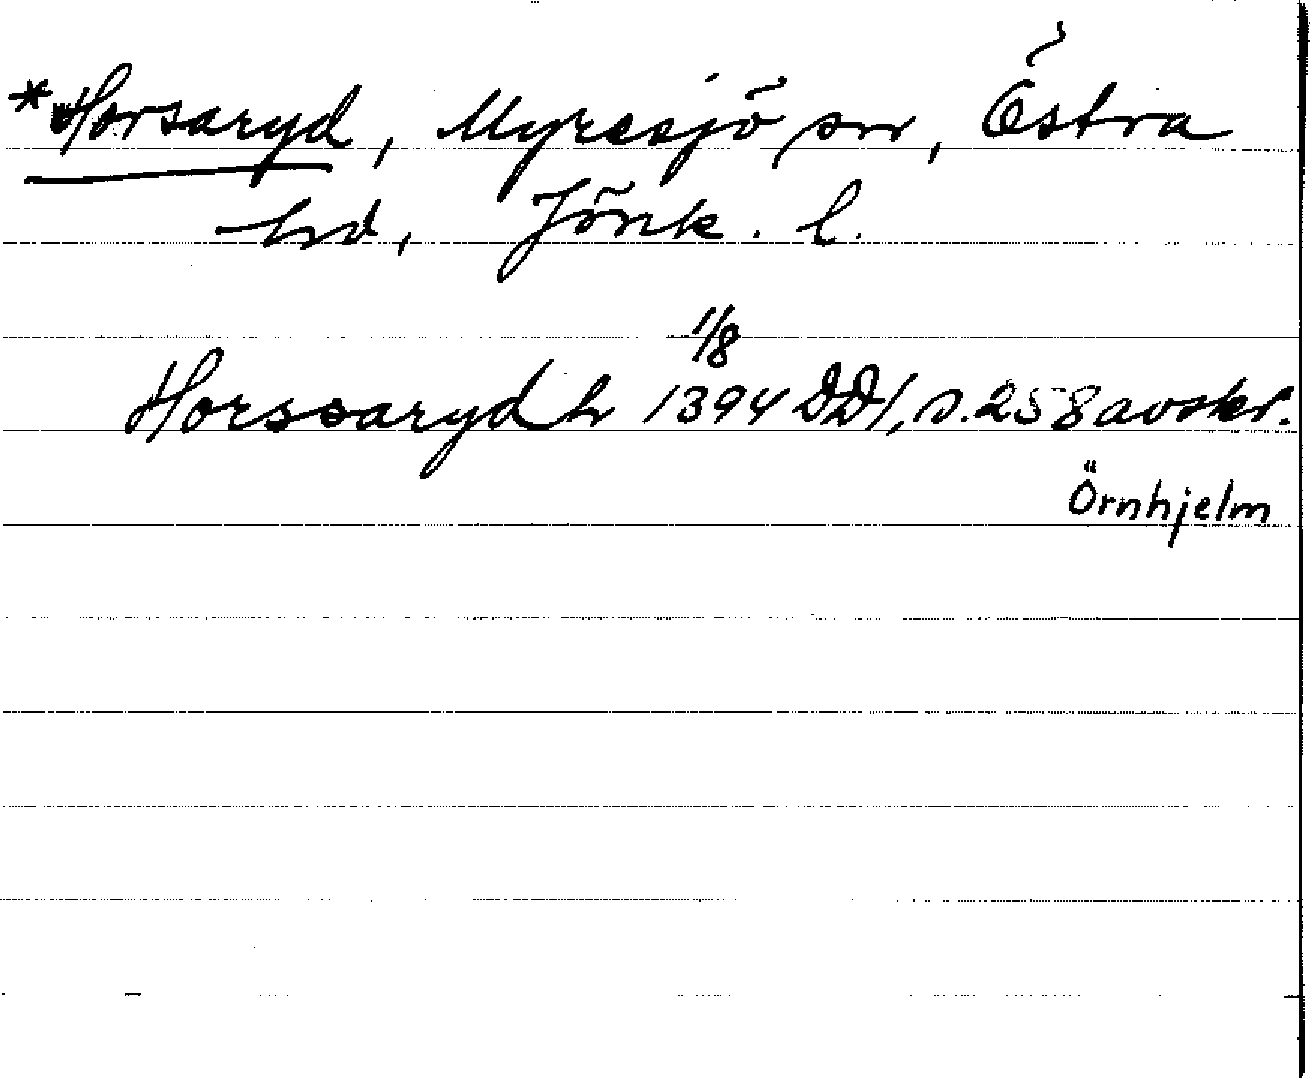 *Horsaryd, Myresjö sn, Östra
hd, Jönk. l.
1/8
Horssaryd h 1394 DD1, s. 258 avskr.
Örnhjelm